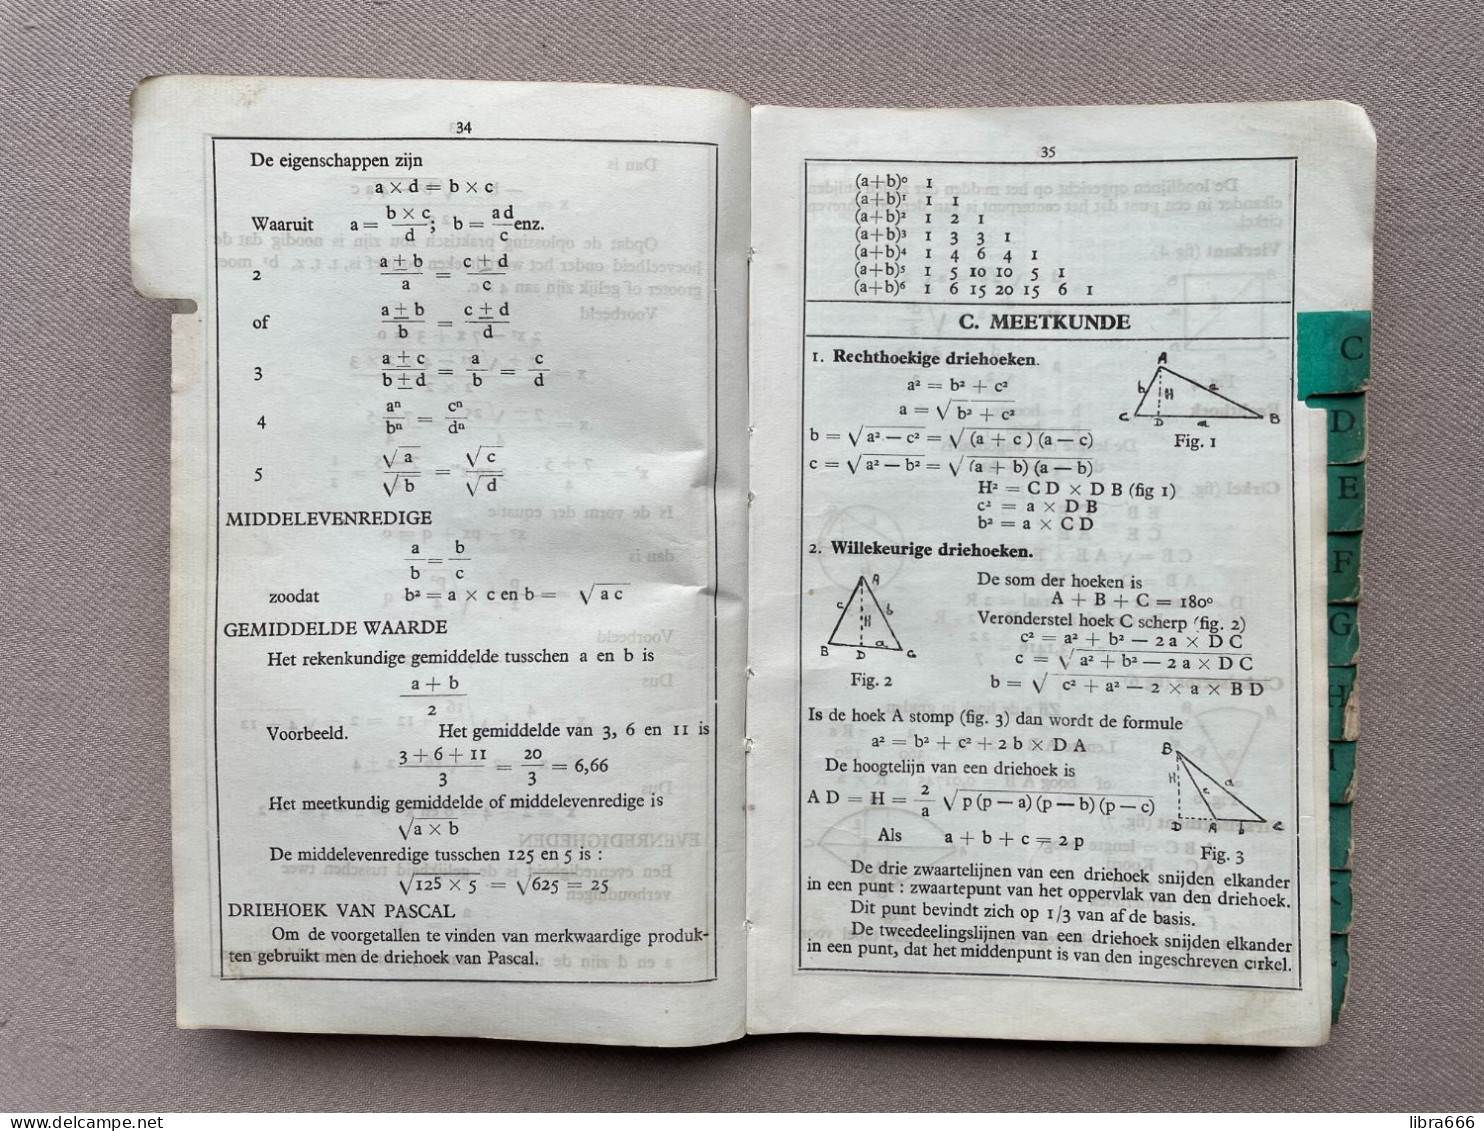 34
De eigenschappen zijn
a × d = b × c
Waaruit a = b × c / d ; b = a d / c enz.
2 a ± b / a = c ± d / c
of a ± b / b = c ± d / d
3 a ± c / b ± d = a / b = c / d
4 aⁿ / bⁿ = cⁿ / dⁿ
5 √a / √b = √c / √d
MIDDELEVENREDIGE
a / b = b / c
zoodat b² = a × c en b = √a c
GEMIDDELDE WAARDE
Het rekenkundige gemiddelde tusschen a en b is
a + b / 2
Voorbeeld. Het gemiddelde van 3, 6 en 11 is
3 + 6 + 11 / 3 = 20 / 3 = 6,66
Het meetkundig gemiddelde of middelevenredige is
√a × b
De middelevenredige tusschen 125 en 5 is :
√125 × 5 = √625 = 25
DRIEHOEK VAN PASCAL
Om de voorgetallen te vinden van merkwaardige produk-
ten gebruikt men de driehoek van Pascal.
35
(a+b)⁰ 1
(a+b)¹ 1 1
(a+b)² 1 2 1
(a+b)³ 1 3 3 1
(a+b)⁴ 1 4 6 4 1
(a+b)⁵ 1 5 10 10 5 1
(a+b)⁶ 1 6 15 20 15 6 1
C. MEETKUNDE
1. Rechthoekige driehoeken.
a² = b² + c²
a = √b² + c²
b = √a² — c² = √(a + c) (a — c)
c = √a² — b² = √(a + b) (a — b)
A b H c C D a B
Fig. 1
H² = C D × D B (fig 1)
c² = a × D B
b² = a × C D
2. Willekeurige driehoeken.
A c b H B D a C
Fig. 2
De som der hoeken is
A + B + C = 180°
Veronderstel hoek C scherp (fig. 2)
c² = a² + b² — 2 a × D C
c = √a² + b² — 2 a × D C
b = √c² + a² — 2 × a × B D
Is de hoek A stomp (fig. 3) dan wordt de formule
a² = b² + c² + 2 b × D A
De hoogtelijn van een driehoek is
A D = H = 2 / a √p (p — a) (p — b) (p — c)
Als a + b + c = 2 p
B H c a D A b C
Fig. 3
De drie zwaartelijnen van een driehoek snijden elkander
in een punt : zwaartepunt van het oppervlak van den driehoek.
Dit punt bevindt zich op 1/3 van af de basis.
De tweedeelingslijnen van een driehoek snijden elkander
in een punt, dat het middenpunt is van den ingeschreven cirkel.
C
D
E
F
G
H
I
K
L
delcampe.net
libra666